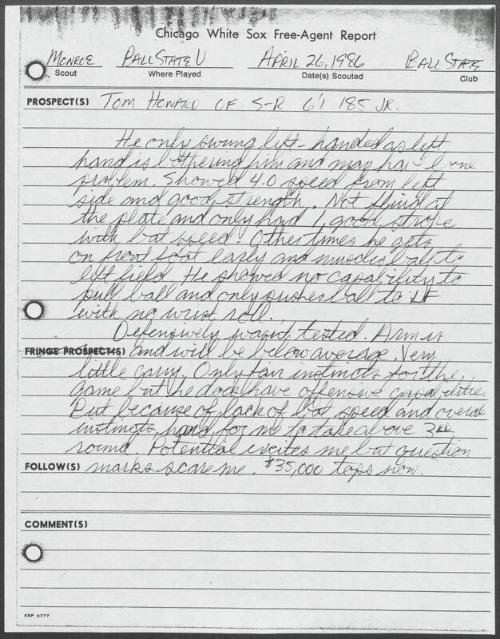 Chicago White Sox Free-Agent Report
MONROE BALL STATE U APRIL 26, 1986 BALL STATE
Scout Where Played Date(s) Scouted Club
PROSPECT(S) TOM HOWARD CF S-R 6'1 185 JR.
He only swung left-handed as left
hand is bothering him and may have bone
problem. Showed 4.0 speed from left
side and good strength. Not fluid at
the plate and only had 1 good stroke
with bat speed. Other times he gets
on front foot early and muscles ball to
left field. He showed no capability to
pull ball and only pushes ball to LF
with no wrist roll.
Defensively wasn't tested. Arm is
FRINGE PROSPECT(S) and will be below average. Very
little carry. Only fair instincts for the
game but he does have offensive capabilities.
But because of lack of bat speed and overall
instincts, hard for me to take above 3rd
round. Potential excites me but question
FOLLOW(S) marks scare me. $35,000 tops now.
COMMENT(S)